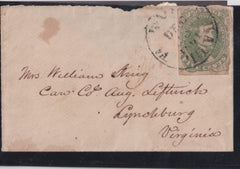 VA
Mrs William King
Care Co Aug. Leftwich
Lynchburg
Virginia